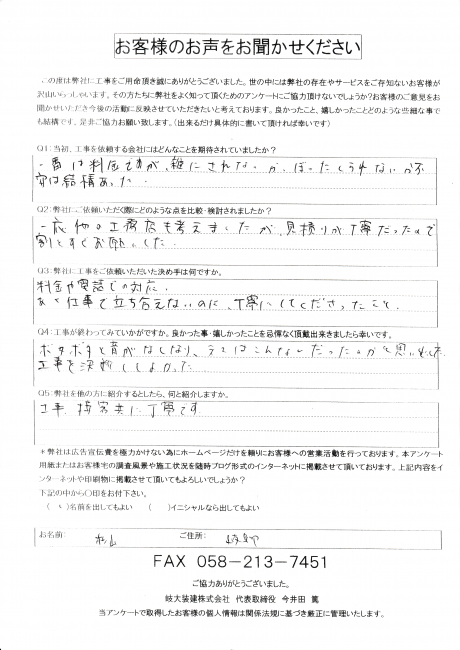 お客様のお声をお聞かせください
この度は弊社に工事をご用命頂き誠にありがとうございました。世の中には弊社の存在やサービスをご存知ないお客様が
沢山いらっしゃいます。その方たちに弊社をよく知って頂くためのアンケートにご協力頂けないでしょうか?お客様のご意見をお
聞かせいただき今後の活動に反映させていただきたいと考えております。良かったこと、嬉しかったことどのような些細な事で
も結構です、是非ご協力お願い致します。(出来るだけ具体的に書いて頂ければ幸いです)
Q1:当初、工事を依頼する会社にはどんなことを期待されていましたか?
一番は料金ですが、雑にされないか、ぼったくられないか不
安は結構あった.
Q2:弊社にご依頼いただく際にどのような点を比較・検討されましたか?
一応他の工務店も考えましたが、見積りが丁寧だったので
割とすぐお願いした.
Q3:弊社に工事をご依頼いただいた決め手は何ですか。
料金や電話での対応.
あと仕事で立ち合えないのに、丁寧にしてくださったこと.
Q4:工事が終わってみていかがですか。良かった事・嬉しかったことを忌憚なく頂戴出来きましたら幸いです。
ポタポタと音がなくなり、
工事を決断してよかった.
Q5:弊社を他の方に紹介するとしたら、何と紹介しますか。
工事、接客共に丁寧です
*弊社は広告宣伝費を極力かけない為にホームページだけを頼りにお客様への営業活動を行っております。本アンケート
用紙またはお客様宅の調査風景や施工状況を随時ブログ形式のインターネットに掲載させて頂いております。上記内容をイ
ンターネットや印刷物に掲載させて頂いてもよろしいでしょうか?
下記の中から○印をお付下さい。
( )名前を出してもよい ( )イニシャルなら出してもよい
お名前: 松山 ご住所:
FAX 058-213-7451
ご協力ありがとうございました。
岐大装建株式会社 代表取締役 今井田 篤
当アンケートで取得したお客様の個人情報は関係法規に基づき厳正に管理いたします。